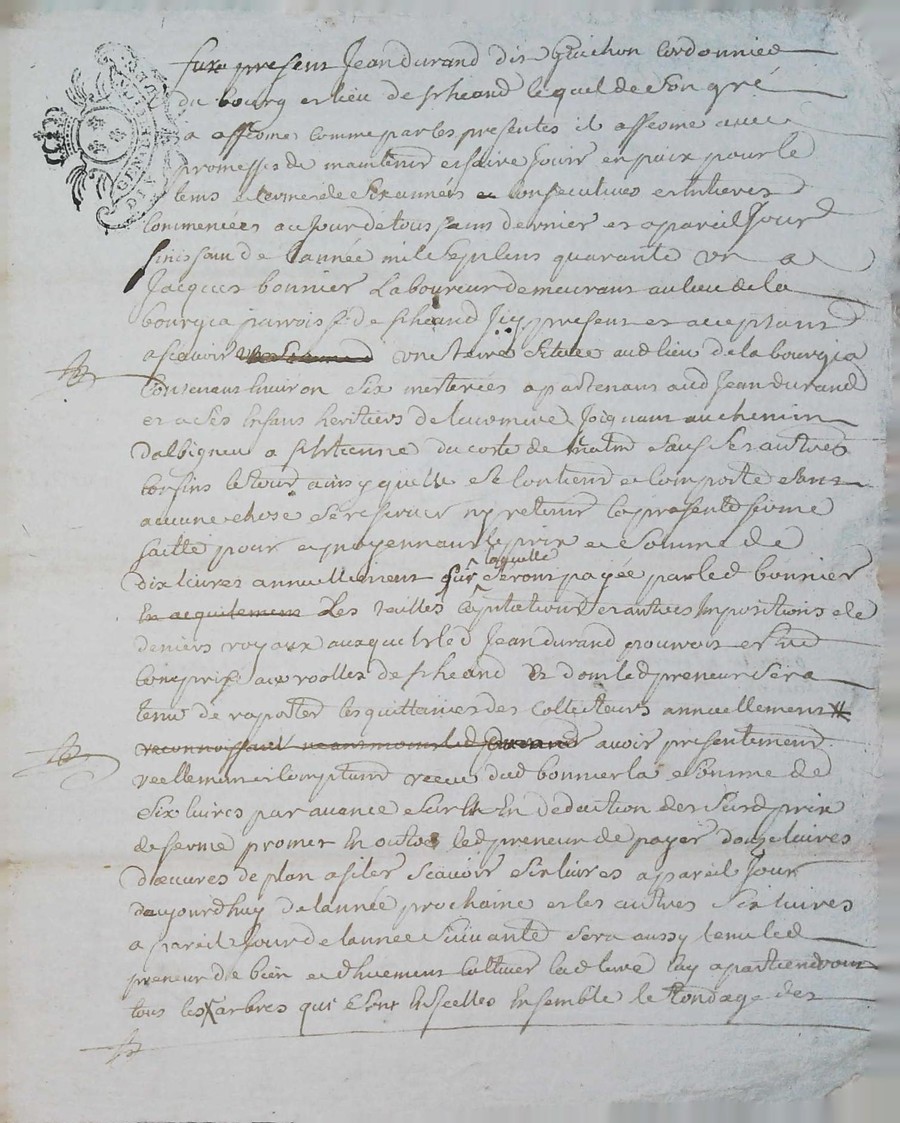 fuxe present Jean durand dit Guichon Cordonnier
du bourg et lieu de st heand lequel de son gré
a afferme comme par les presentes il afferme avec
promesses de maintenir et faire Jouir en paix pour le
tems et terme de six années et Consecutives et entieres
Commencées au Jour de tous saints dernier et a pareil Jour
finissant de l'année mil sept cens quarante un a
Jacques bonnier Laboureur demeurant au lieu de la
bourgia parroisse de st heand Icy present et acceptant
a scavoir une terre située aud lieu de la bourgia
Contenant Environ six meiterées apartenant aud Jean durand
et a ses Enfans heritiers de leur mere Joignant au chemin
d'albigneu a st Etienne du coté de matin sauf ses autres
Confins le tout ainsy quelle se Contient et Comporte sans
aucune chose se reserver ny retenir la presente ferme
faitte pour et moyennant le prix et somme de
dix livres annuellement sur laquelle seront payée par led bonnier
En acquitement Les tailles Capitations et autres Impositions et
deniers royaux auxquels led Jean durand pouvoit estre
Compris aux roolles de st heand Et dont led preneur sera
tenu de raporter les quittances des Collecteurs annuellement
reconnoissant neanmoins led durand avoir presentement
reellement et Comptant receu dud bonnier la somme de
six livres par avance et sur Et En deduction du susd prix
de ferme promet En outre led preneur de payer douze livres
d'œuvres de plan a filer scavoir six livres a pareil Jour
daujourdhuy de l'année prochaine et les autres six livres
a pareil Jour de l'année suivante sera aussy tenu led
preneur de bien et duement Cultiver lad terre luy apartiendront
tous les arbres qui sont En icelle Ensemble le tondage des